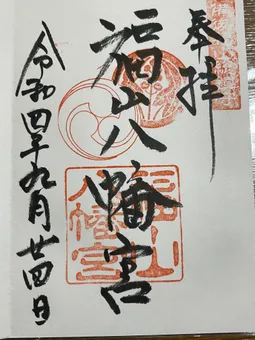 奉拝
福山八幡宮
令和四年九月廿四日
福山
八幡宮